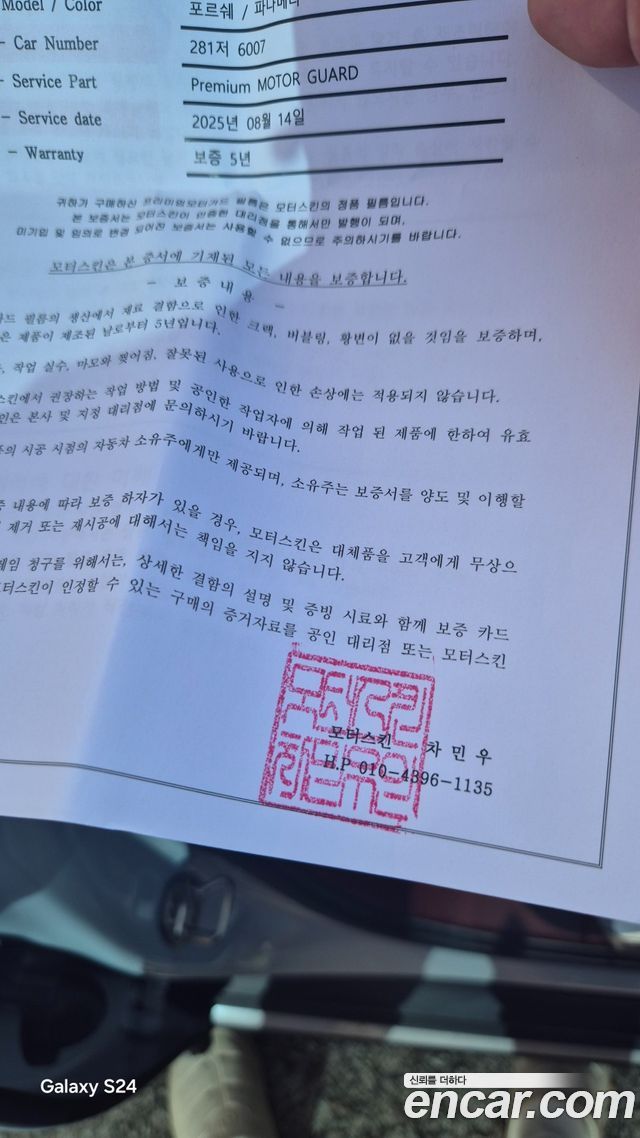 Model / Color 포르쉐 / 파나메라
- Car Number 281저 6007
- Service Part Premium MOTOR GUARD
- Service date 2025년 08월 14일
- Warranty 보증 5년
귀하가 구매하신 프리미엄모터가드 필름은 모터스킨의 정품 필름입니다.
본 보증서는 모터스킨이 인증한 대리점을 통해서만 발행이 되며,
미기입 및 임의로 변경 되어진 보증서는 사용할 수 없으므로 주의하시기를 바랍니다.
모터스킨은 본 증서에 기재된 모든 내용을 보증합니다.
- 보 증 내 용 -
필름의 생산에서 재료 결함으로 인한 크랙, 버블링, 황변이 없을 것임을 보증하며,
은 제품이 제조된 날로부터 5년입니다.
작업 실수, 마모와 찢어짐, 잘못된 사용으로 인한 손상에는 적용되지 않습니다.
스킨에서 권장하는 작업 방법 및 공인한 작업자에 의해 작업 된 제품에 한하여 유효
인은 본사 및 지정 대리점에 문의하시기 바랍니다.
의 시공 시점의 자동차 소유주에게만 제공되며, 소유주는 보증서를 양도 및 이행할
내용에 따라 보증 하자가 있을 경우, 모터스킨은 대체품을 고객에게 무상으
제거 또는 재시공에 대해서는 책임을 지지 않습니다.
청구를 위해서는, 상세한 결함의 설명 및 증빙 시료와 함께 보증 카드
터스킨이 인정할 수 있는 구매의 증거자료를 공인 대리점 또는 모터스킨
모터스킨 차 민 우
H.P 010-4396-1135
Galaxy S24
신뢰를 더하다
encar.com